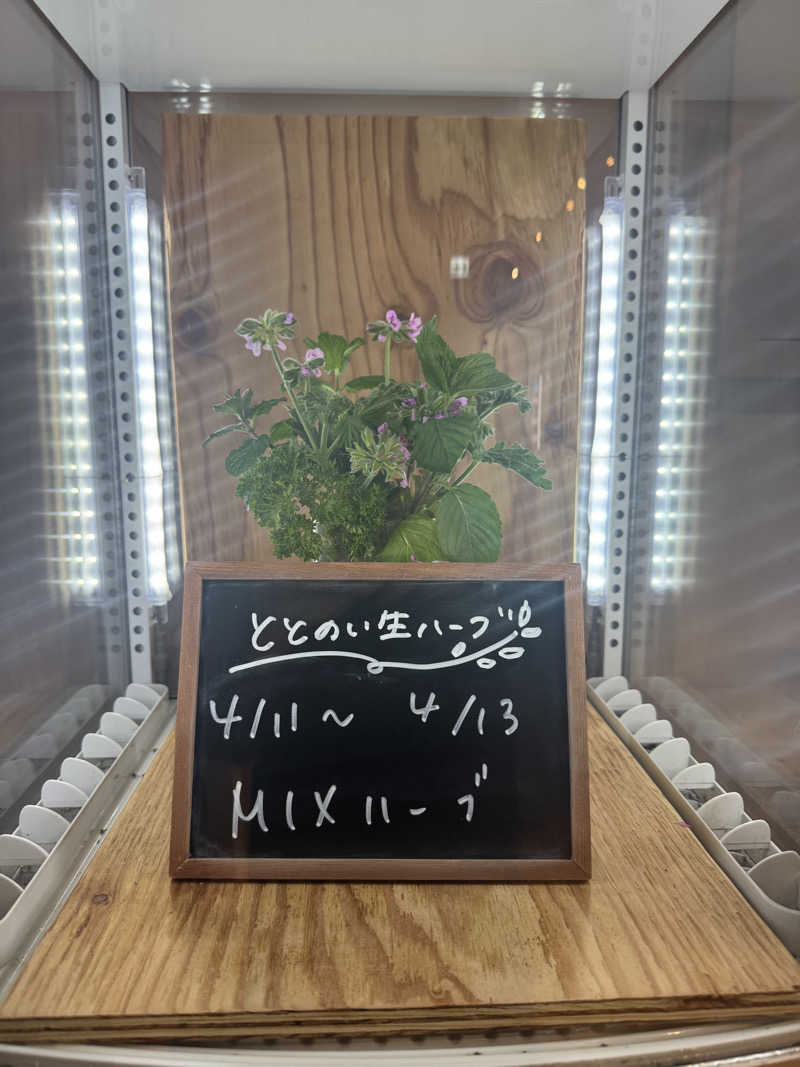 ととのい生ハーブ
4/11～ 4/13
MIXハーブ